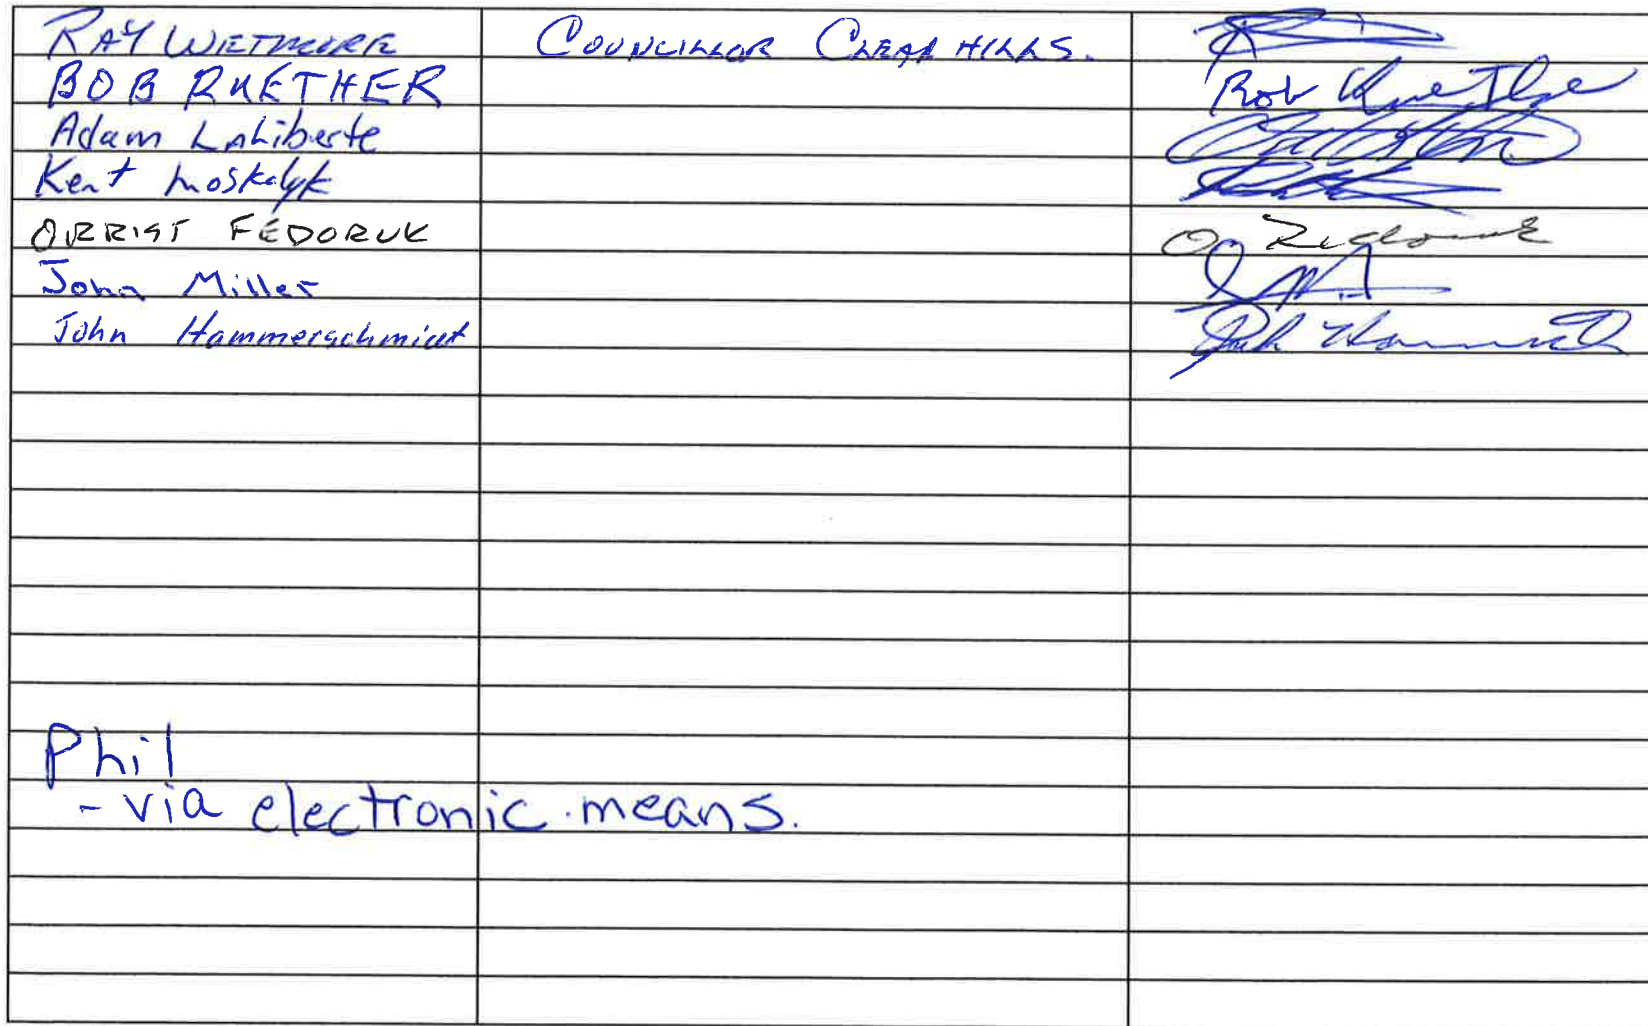 RAY WETMORE COUNCILLOR CLEAR HILLS.
BOB RUETHER Bob Ruether
Adam Laliberte
Kent Moskalyk
ORRIST FEDORUK O Fedoruk
John Miller
John Hammerschmidt
Phil
- via electronic means.